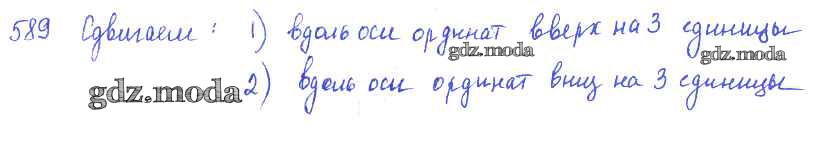 589 Сдвигаем: 1) вдоль оси ординат вверх на 3 единицы
gdz.moda
gdz.moda
gdz.moda 2) вдоль оси ординат вниз на 3 единицы